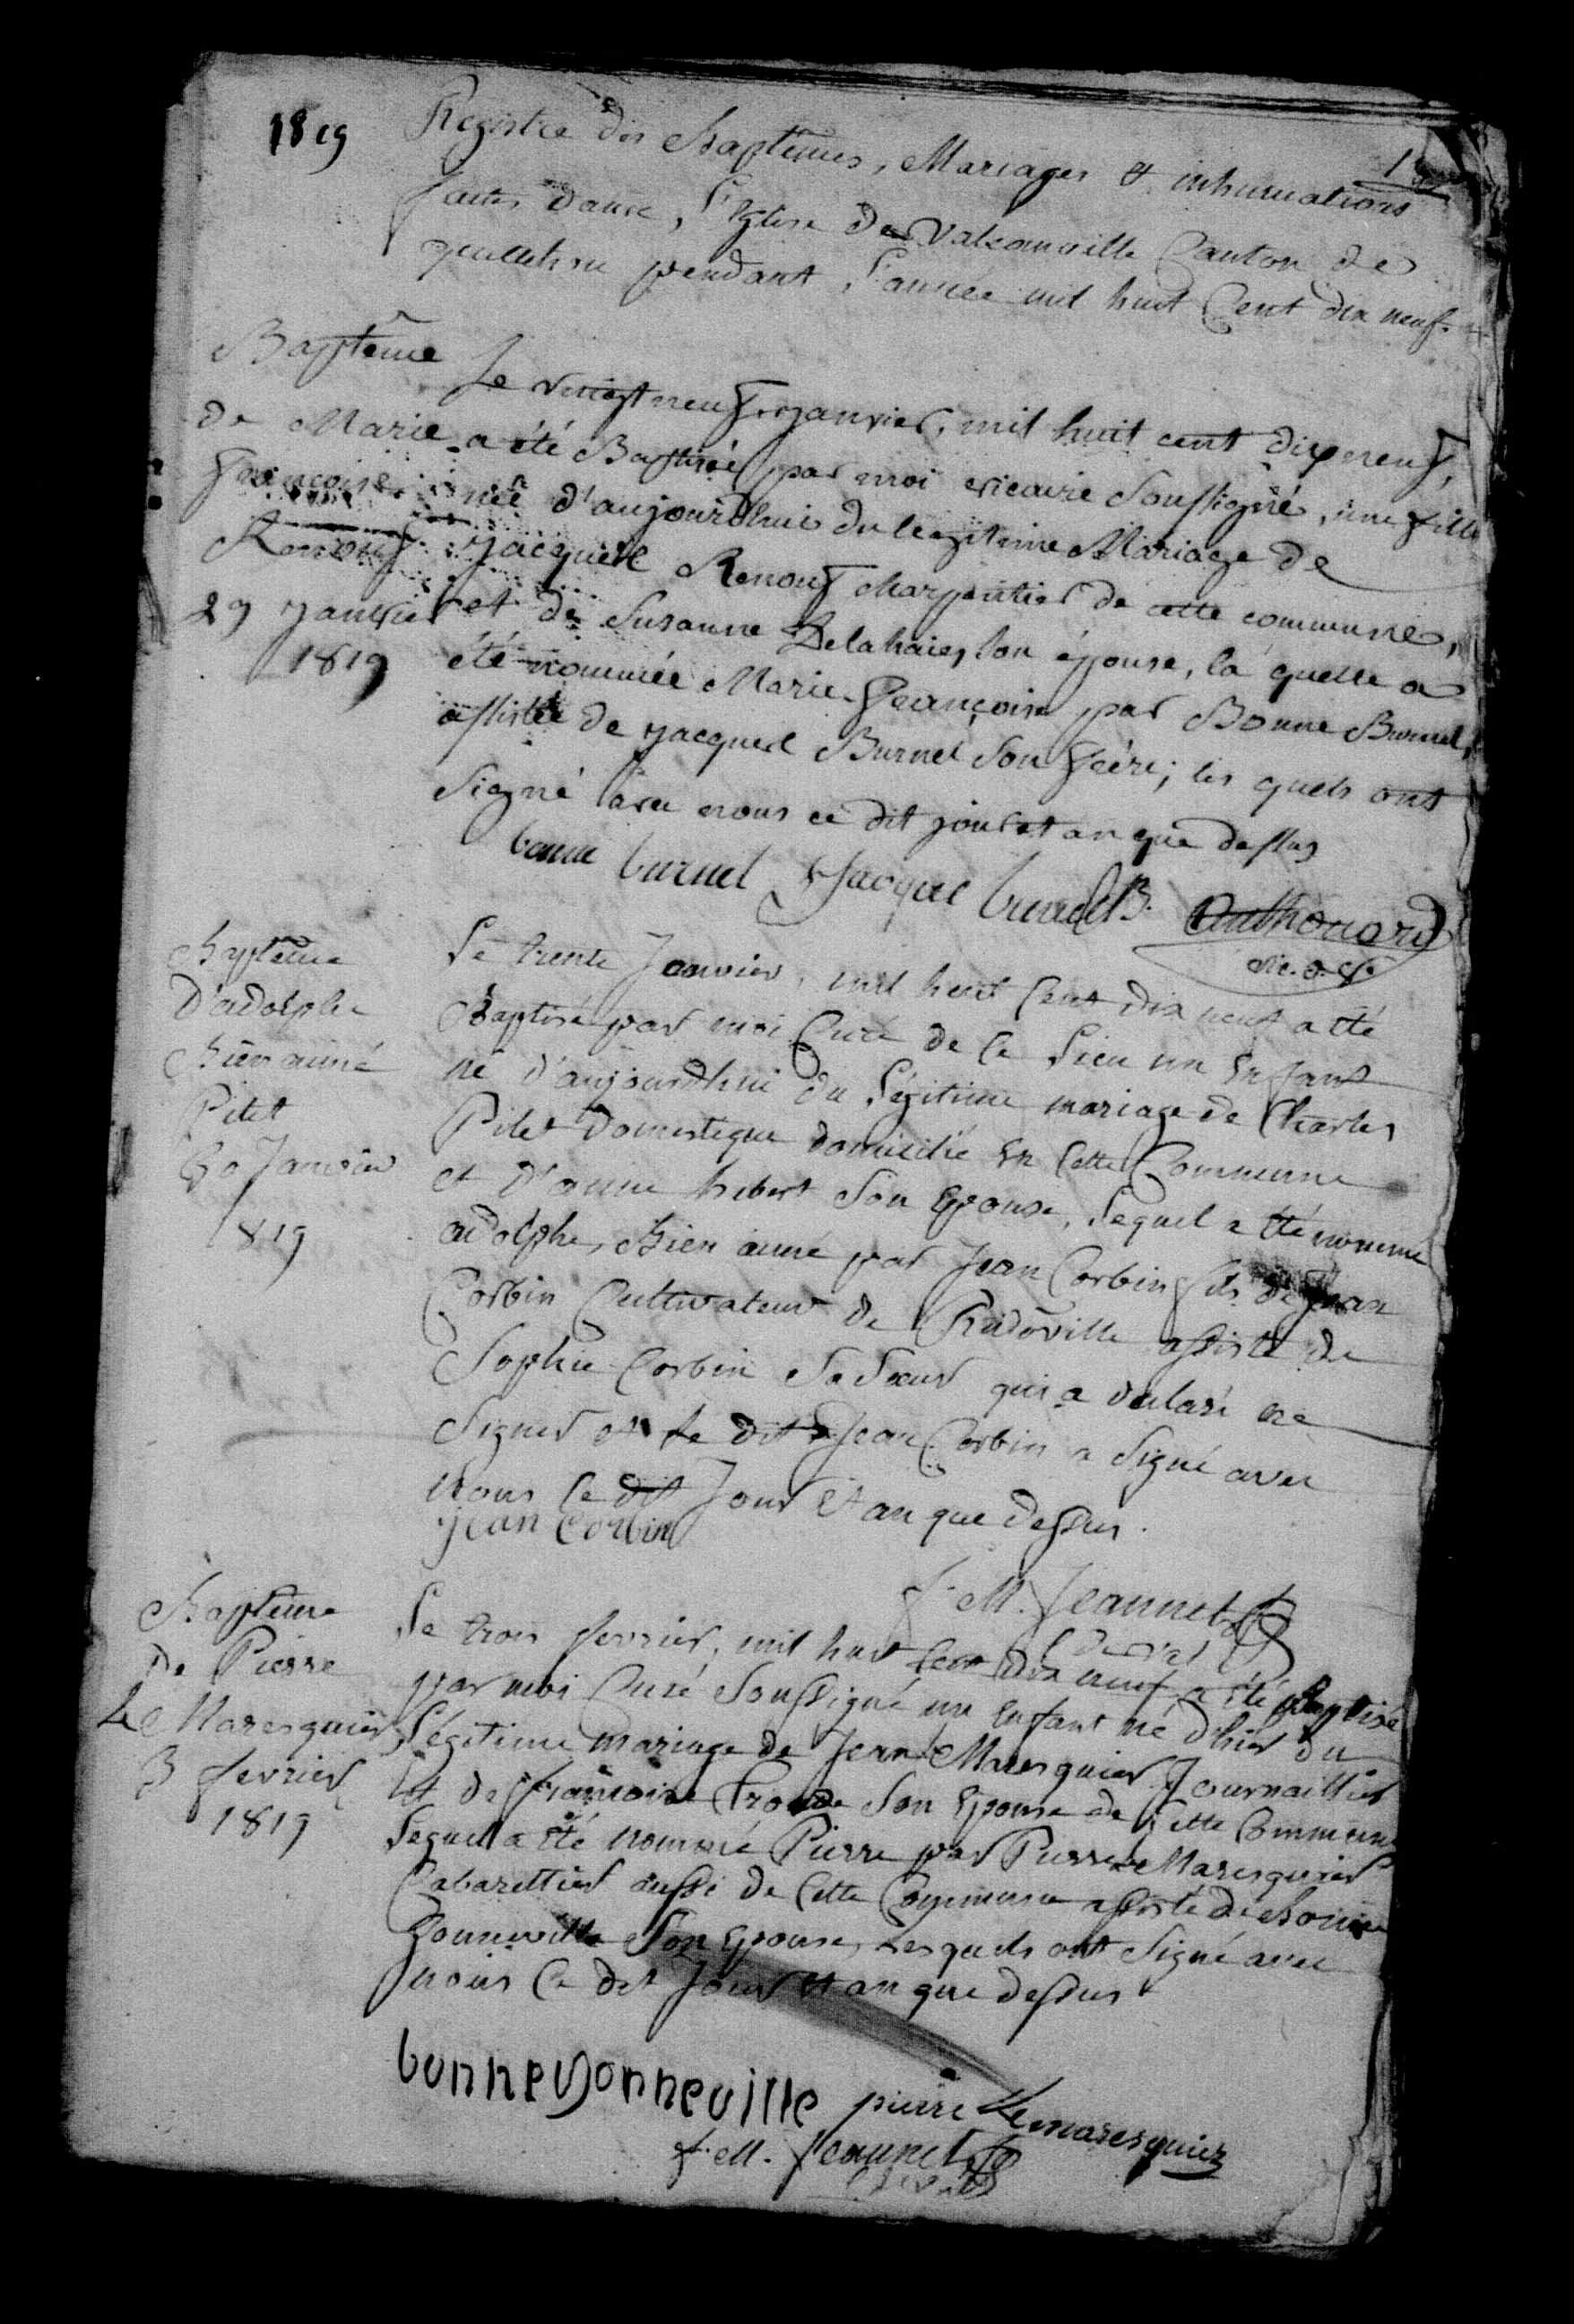 1819
1
Registre des Baptêmes, Mariages & inhumations
faites dans l'Eglise de Valcanville Canton de
quettehou pendant l'année mil huit Cent dix neuf.
Baptême
de Marie
françoise
Renouf
29 janvier
1819
Le vingt neuf janvier, mil huit cent dix neuf,
a été Baptisée par moi vicaire soussigné, une fille
née d'aujourd'hui du legitime Mariage de
jacques Renouf charpentier de cette commune,
et de Susanne Delahaie, son épouse, la quelle a
été nommée Marie-françoise par Bonne Burnel,
assistée de jacques Burnel son frère; les quels ont
signé avec nous ce dit jour et an que dessus
bonne burnel Jacque burnel B. Anthouard
vic. d. V.
Baptême
D'adolphe
Bien aimé
Pitet
30 Janvier
1819
Le trente Janvier, mil huit Cent dix neuf a été
Baptisé par moi Curé de ce lieu un Enfant
né d'aujourdhui du légitime mariage de Charles
Pitet Domestique domicilié En Cette Commune
et D'anne hebert son Epouse, lequel a été nommé
adolphe, Bien aimé par Jean Corbin fils de Jean
Corbin Cultivateur de Reidoville assisté de
Sophie Corbin sa sœur qui a declaré ne
signer et le dit Jean Corbin a signé avec
nous ce dit Jour Et an que dessus.
jean Corbin
f. M. Jeannet
C de Val
Baptême
De Pierre
Le Maresquier
3 fevrier
1819
Le trois fevrier, mil huit Cent dix neuf a été Baptisé
par moi Curé soussigné un Enfant né d'hier du
légitime mariage de Jean Maresquier Journaillier
Et de françoise son Epouse de Cette Commune
lequel a été nommé Pierre par Pierre Maresquier
Cabarettier aussi de Cette Commune assisté de Bonne
Gonneville son Epouse, lesquels ont signé avec
nous Ce dit Jour et an que dessus
bonne Gonneville pierre Lemaresquier
f. M. Jeannet
C de Val